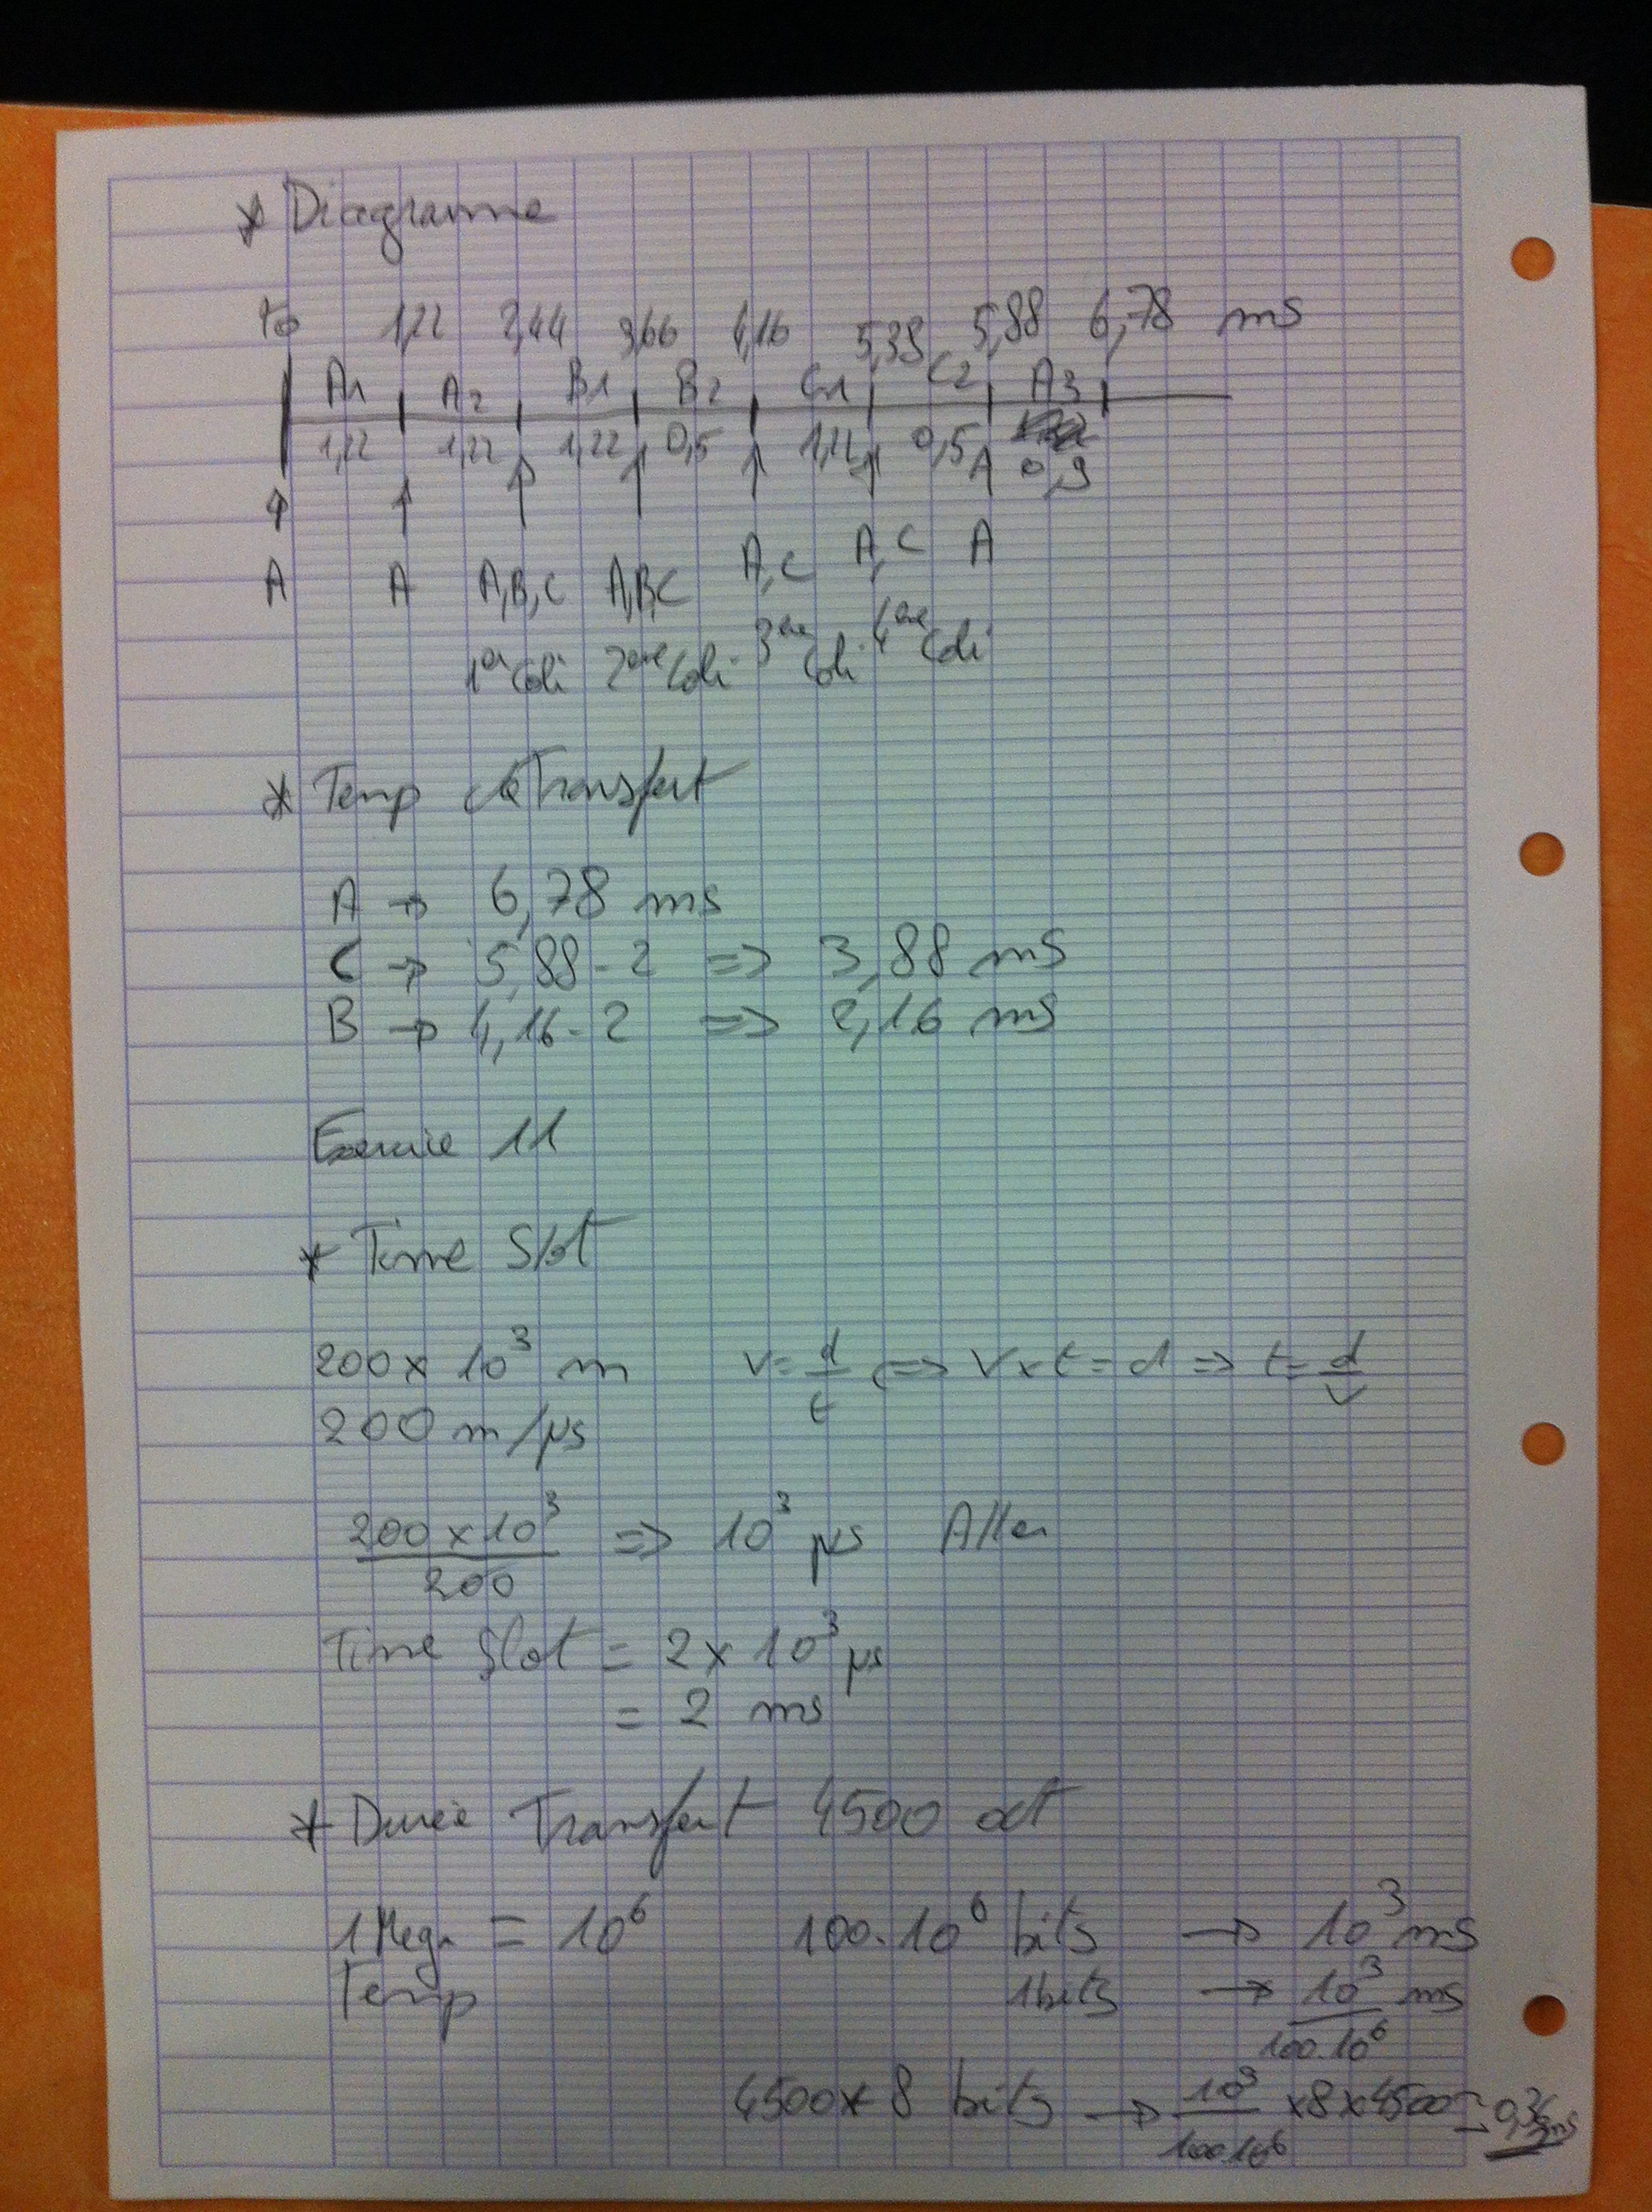 * Diagramme
to 1,22 2,44 3,66 4,16 5,38 5,88 6,78 ms
A1 A2 B1 B2 C1 C2 A3
1,22 1,22 1,22 0,5 1,22 0,5 0,9
A A A,B,C A,B,C A,C A,C A
1er Coli 2eme Coli 3eme Coli 4eme Coli
* Temp de Transfert
A → 6,78 ms
C → 5,88 - 2 => 3,88 ms
B → 4,16 - 2 => 2,16 ms
Exercice 11
* Time Slot
200 x 10³ m v = d/t <=> v x t = d => t = d/v
200 m/µs
200 x 10³ / 200 => 10³ µs Aller
Time Slot = 2 x 10³ µs
= 2 ms
* Durée Transfert 4500 oct
1 Mega = 10⁶ 100.10⁶ bits → 10³ ms
Temp 1 bits → 10³ / 100.10⁶ ms
4500 x 8 bits → 10³ / 100.10⁶ x 8 x 4500 = 0,36 ms